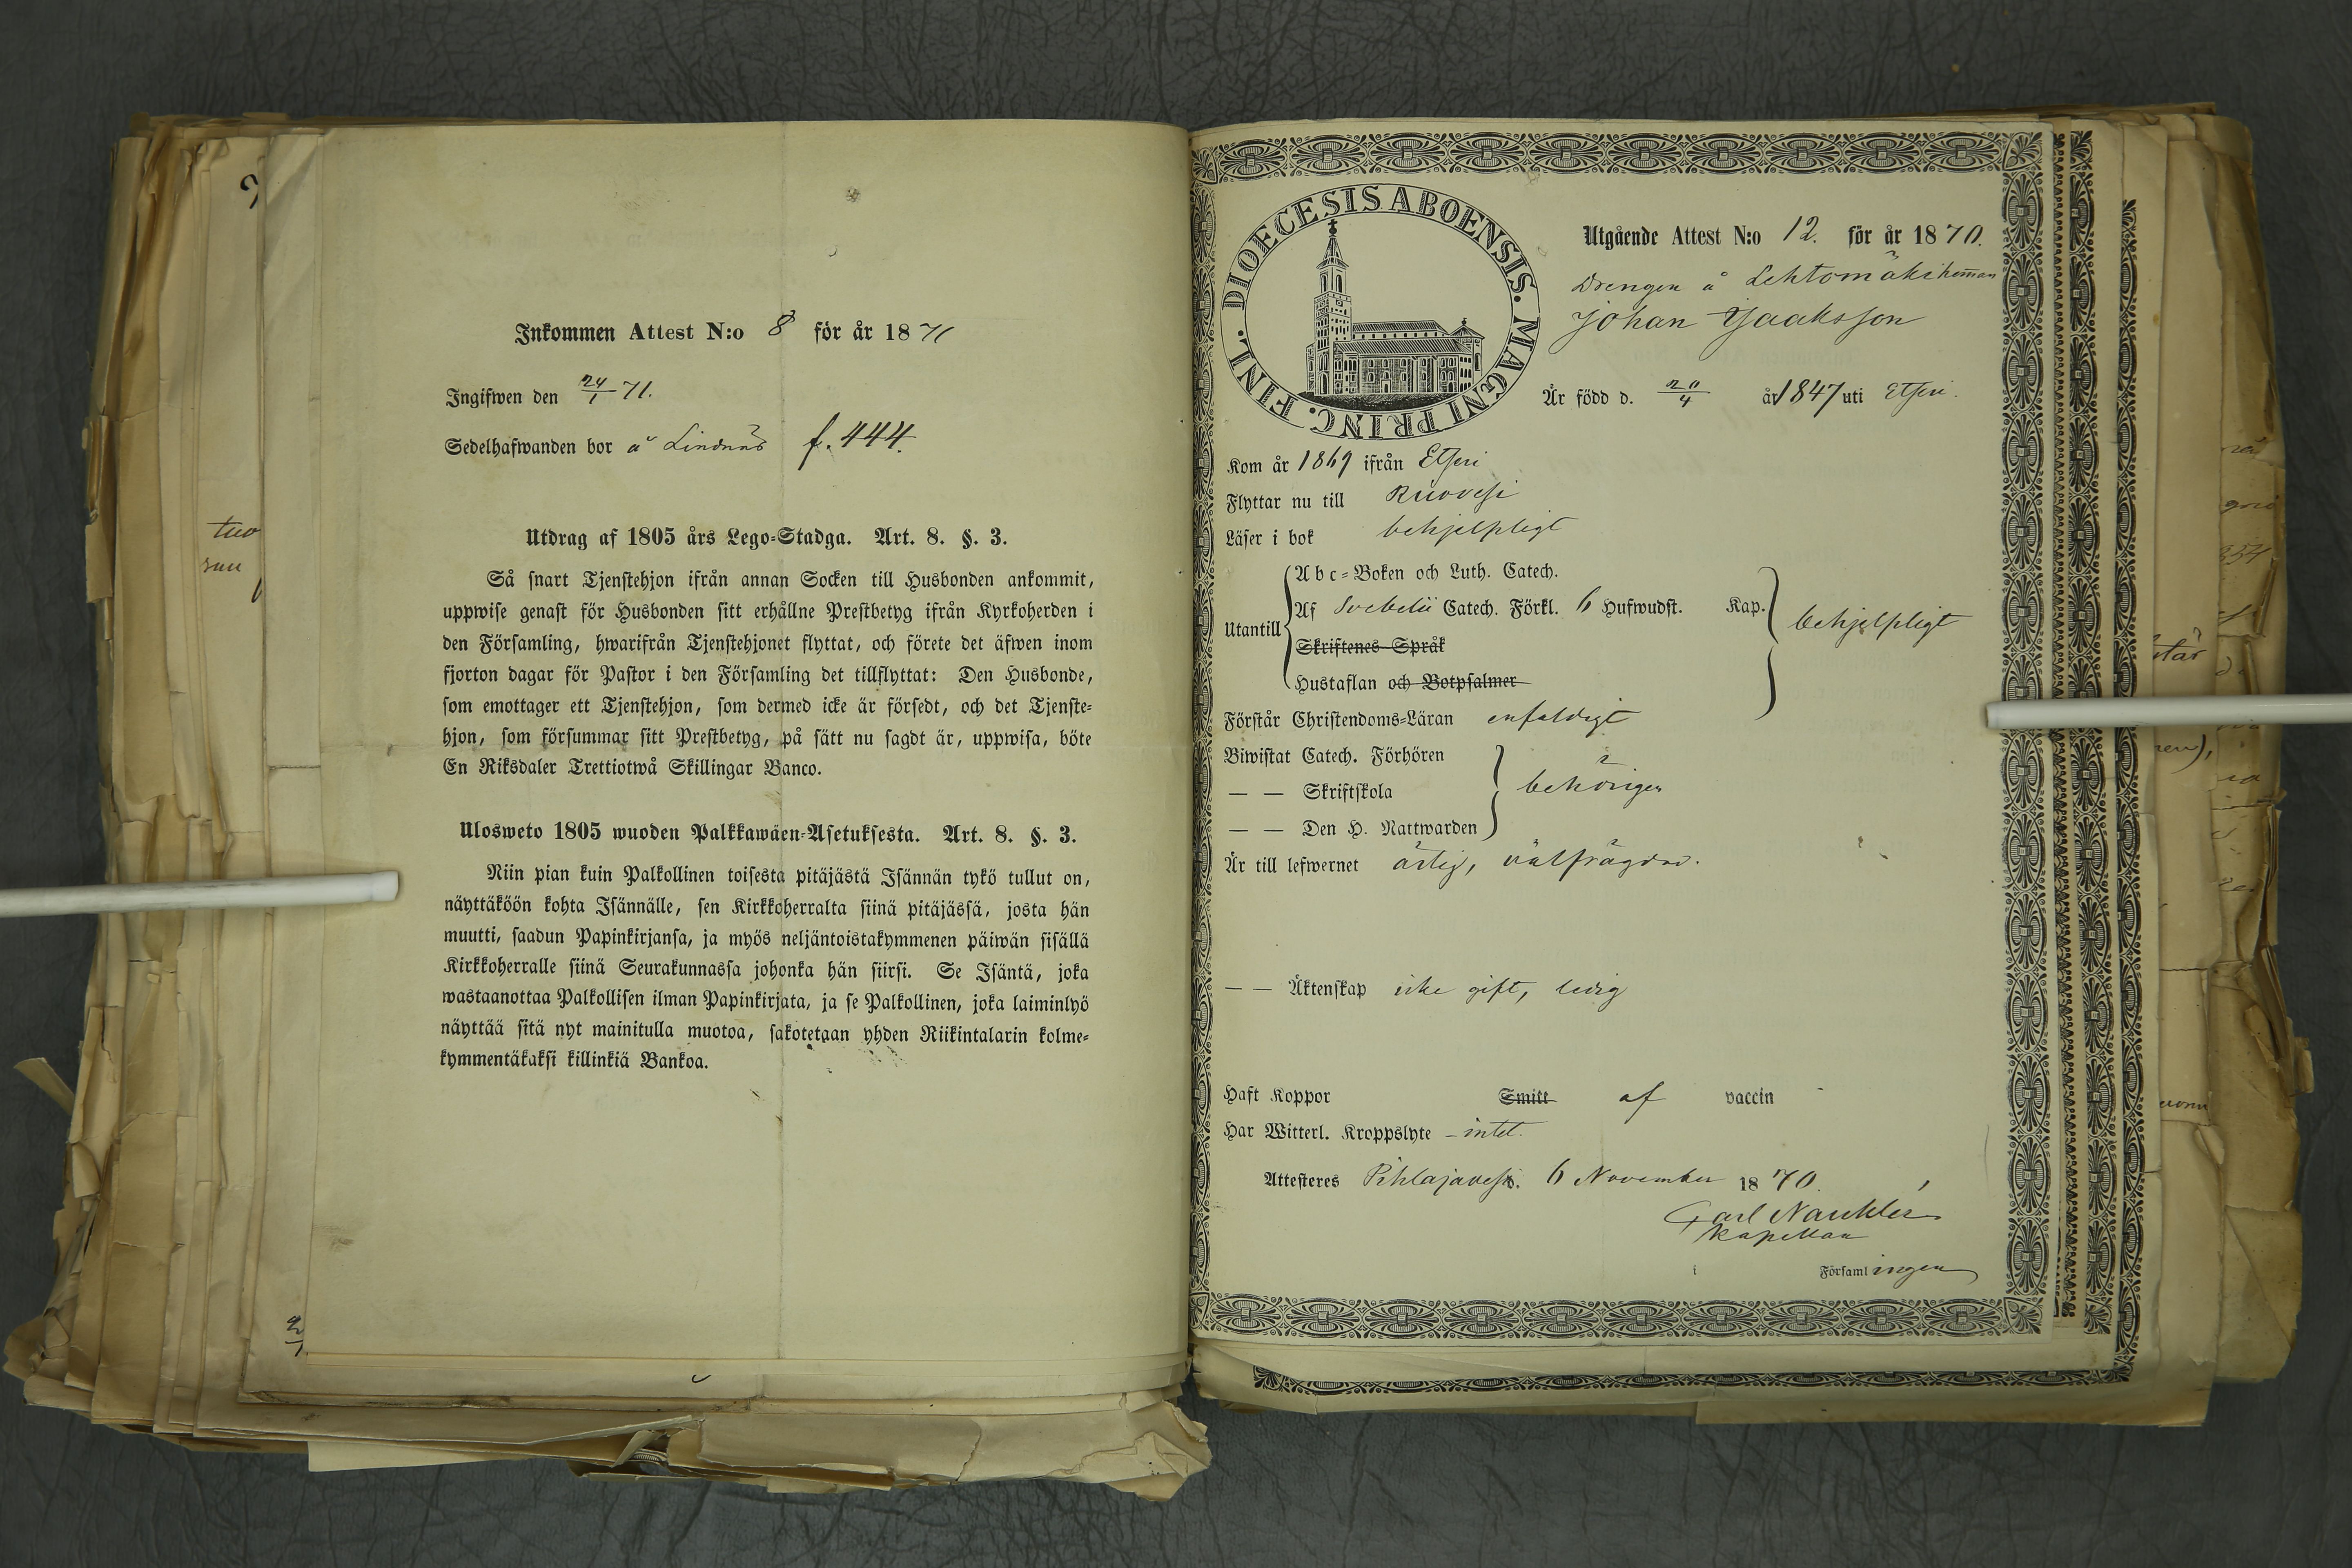 Inkommen Attest N:o 8 för år 1871
Ingifwen den 24/1 71.
Sedelhafwanden bor å Lindnäs f. 444.
Utdrag af 1805 års Lego-Stadga. Art. 8. §. 3.
Så snart Tjenstehjon ifrån annan Socken till Husbonden ankommit,
uppwise genast för Husbonden sitt erhållne Prestbetyg ifrån Kyrkoherden i
den Församling, hwarifrån Tjenstehjonet flyttat, och förete det äfwen inom
fjorton dagar för Pastor i den Församling det tillflyttat: Den Husbonde,
som emottager ett Tjenstehjon, som dermed icke är försedt, och det Tjenste-
hjon, som försummar sitt Prestbetyg, på sätt nu sagdt är, uppwisa, böte
En Riksdaler Trettiotwå Skillingar Banco.
Ulosweto 1805 wuoden Palkkawäen-Asetuksesta. Art. 8. §. 3.
Niin pian kuin Palkollinen toisesta pitäjästä Isännän tykö tullut on,
näyttäköön kohta Isännälle, sen Kirkkoherralta siinä pitäjässä, josta hän
muutti, saadun Papinkirjansa, ja myös neljäntoistakymmenen päiwän sisällä
Kirkkoherralle siinä Seurakunnassa johonka hän siirsi. Se Isäntä, joka
wastaanottaa Palkollisen ilman Papinkirjata, ja se Palkollinen, joka laiminlyö
näyttää sitä nyt mainitulla muotoa, sakotetaan yhden Riikintalarin kolme-
kymmentäkaksi killinkiä Bankoa.
DIOECESIS ABOENSIS. MAGNI PRINC. FINL.
Utgående Attest N:o 12. för år 1870.
Drengen å Lehtomäki heman
Johan Jaaksson
Är född d. 20/4 år 1847 uti Etseri.
Kom år 1869 ifrån Etseri
Flyttar nu till Ruovesi
Läser i bok behjelpligt
Utantill
Abc-Boken och Luth. Catech.
Af Svebelii Catech. Förkl. 6 Hufwudst. Kap.
behjelpligt
Skriftenes Språk
Hustaflan och Botpsalmer
Förstår Christendoms-Läran enfaldigt
Biwistat Catech. Förhören
— — Skriftskola behörigen
— — Den H. Nattwarden
Är till lefwernet ärlig, välfrägdad.
— — Äktenskap icke gift, ledig
Haft Koppor Smitt af vaccin
Har Witterl. Kroppslyte – intet.
Attesteres Pihlajavesi. 6 November 1870.
Carl Nauklér
Kapellan
i Församlingen